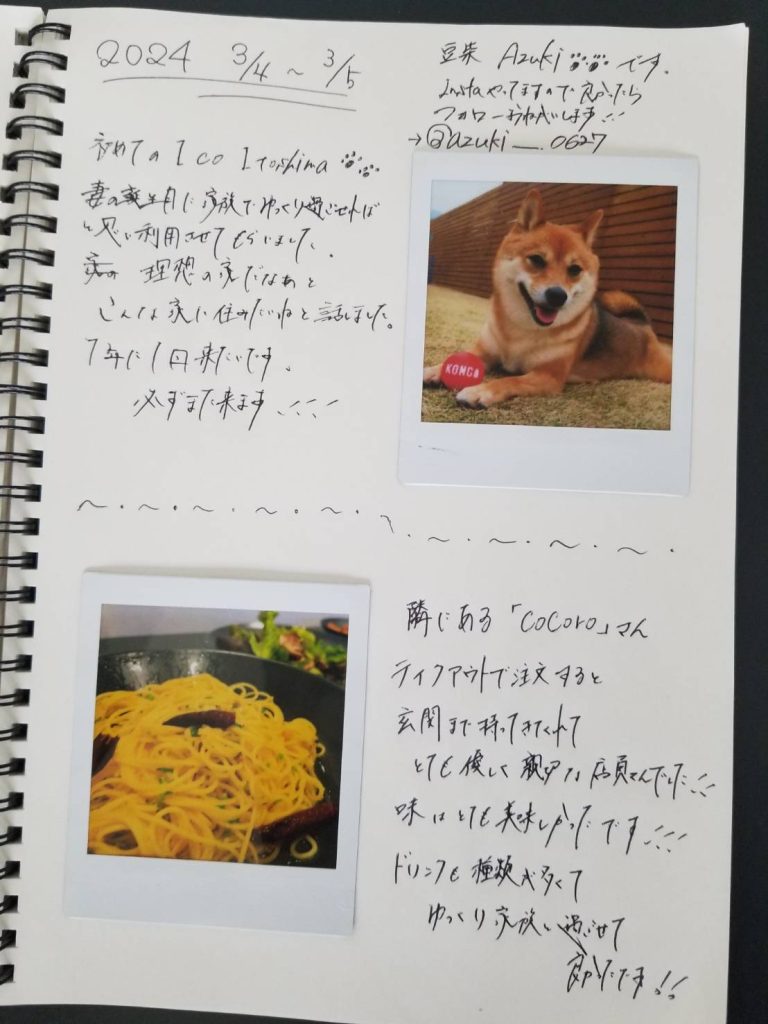 2024 3/4 ~ 3/5
初めての Ico Itoshima
妻の誕生日に家族でゆっくり過ごせれば
と思い利用させてもらいました.
理想の家だなぁと
こんな家に住みたいねと話しました。
1年に1回来たいです.
必ずまた来ます!!!
豆柴 Azuki です.
Instaやってますので良かったら
フォローお願いします!!
→@azuki__.0627
KONG
隣にある「CoCoro」さん
テイクアウトで注文すると
玄関まで持ってきてくれて
とても優しく親切な店員さんでした!!
味はとても美味しかったです!!!
ドリンクも種類が多くて
ゆっくり家族と過ごせて
良かったです!!